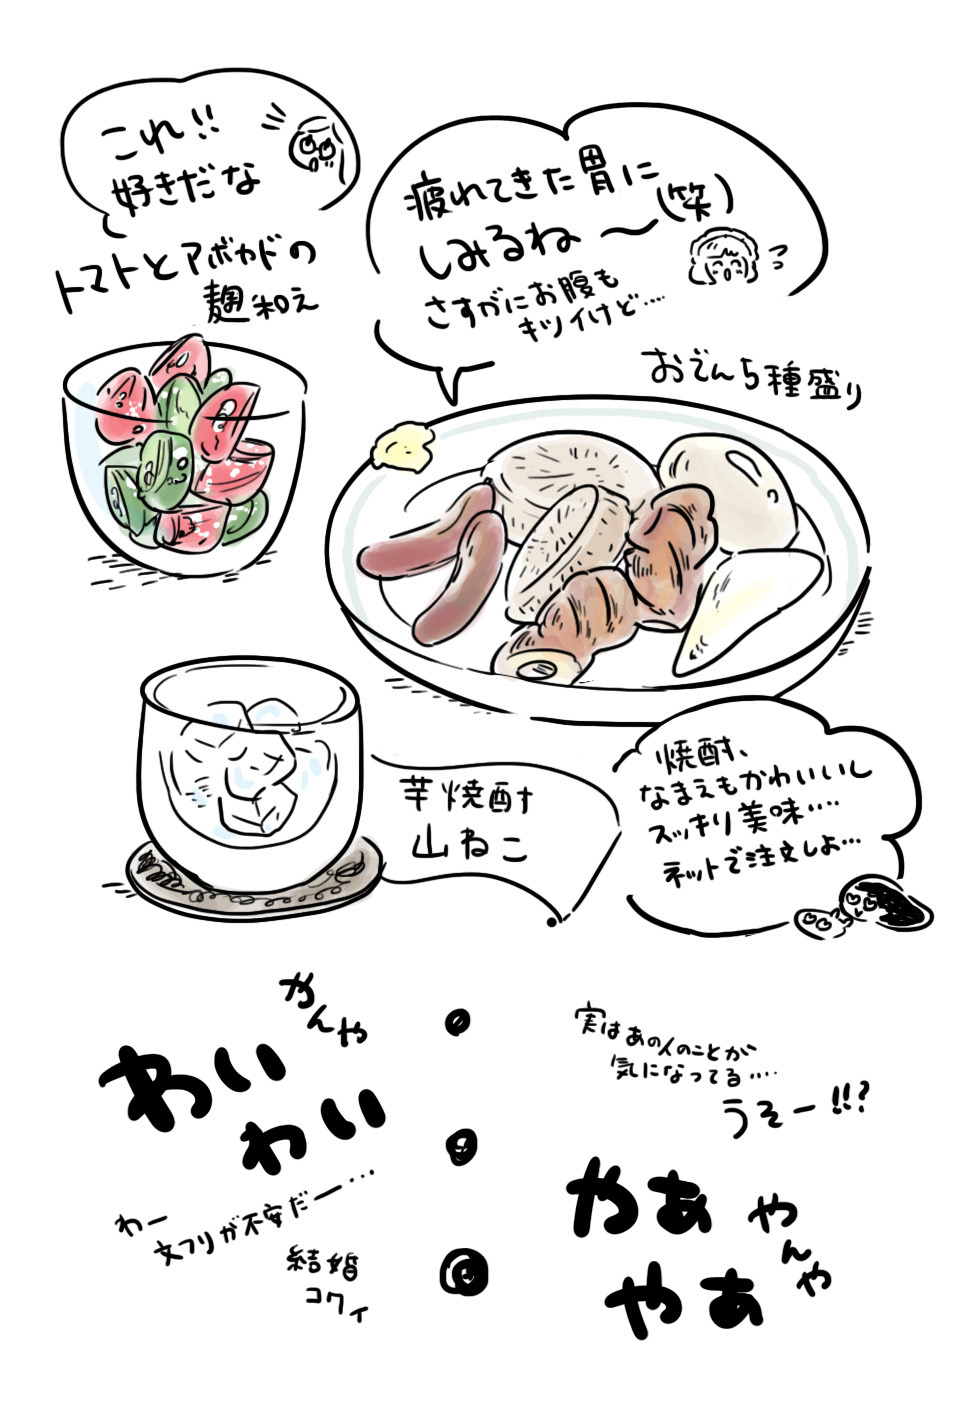 これ!!
好きだな
トマトとアボカドの
麹和え
疲れてきた胃に
しみるね〜(笑)
さすがにお腹も
キツイけど....
おでん5種盛り
芋焼酎
山ねこ
焼酎、
なまえもかわいいし
スッキリ美味....
ネットで注文しよ...
かんや
わい
わい
わー
文フリが不安だー...
結婚
コワイ
実はあの人のことが
気になってる....
うそー!!?
やぁ
やぁ
やんや